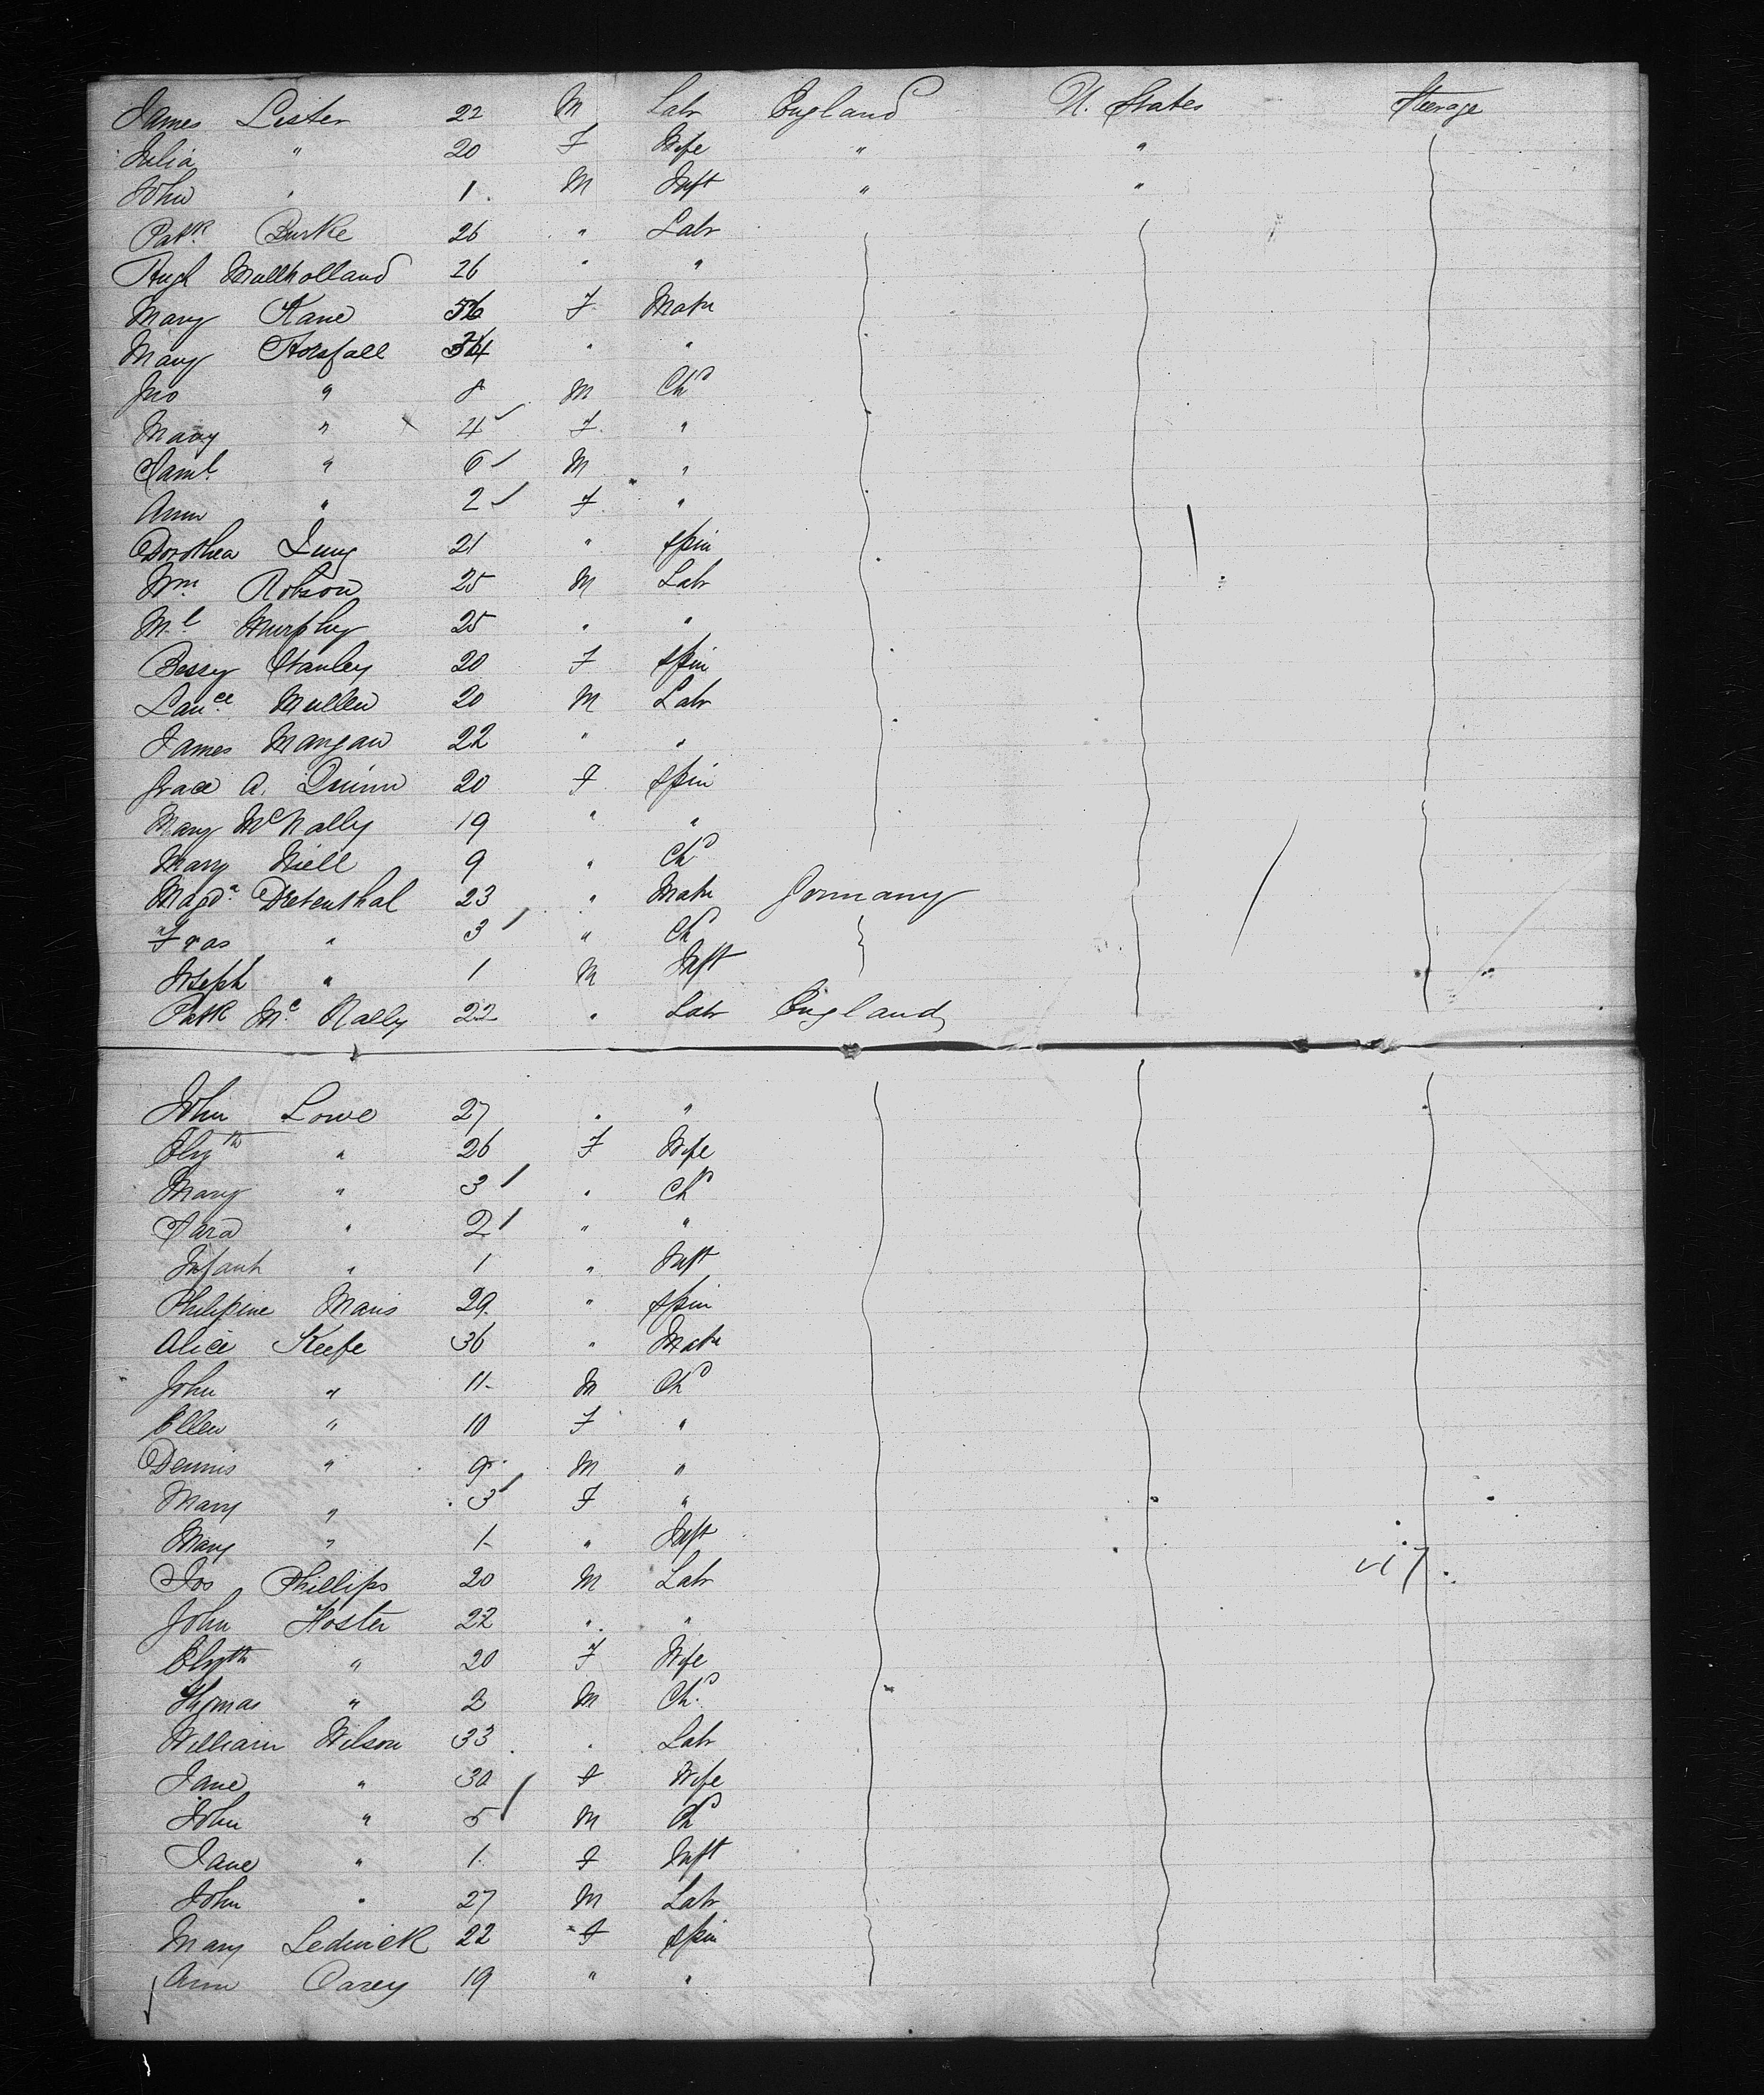 James Lister 22 M Labr England U. States Steerage
Julia " 20 F Wife " "
John " 1 M Inft " "
Patk. Burke 26 " Labr
Hugh Mullholland 26 " "
Mary Kane 56 F Matn
Mary Horsfall 34 " "
Jno " 8 M Chd
Mary " 4 F "
Saml. " 6 M "
Ann " 2 F "
Dorothea 21 " Spin
Wm. Robson 25 M Labr
Ml. Murphy 25 " "
Bessy Stanley 20 F Spin
Lauce Mullen 20 M Labr
James Mangan 22 " "
Grace A. Quinn 20 F Spin
Mary McNally 19 " "
Mary Niell 9 " Chd
Magda. Dretenthal 23 " Matn Germany
Fras " 3 " Chd
Joseph " 1 M Inft
Patk Mc. Nally 22 " Labr England
John Lowe 27 " "
Elizth " 26 F Wife
Mary " 3 " Chd
Sara " 2 " "
Infant " 1 " Inft
Philipine Maris 29 " Spin
Alice Keefe 36 " Matn
John " 11 M Chd
Ellen " 10 F "
Dennis " 9 M "
Mary " 3 F "
Mary " 1 " Inft
Jos Phillips 20 M Labr
John Hoster 22 " "
Elizth " 20 F Wife
Thomas " 2 M Chd.
William Wilson 33 " Labr
Jane " 30 F Wife
John " 5 M Chd
Jane " 1 F Inft
John " 27 M Labr
Mary Ledwick 22 F Spin
Ann Carey 19 " "